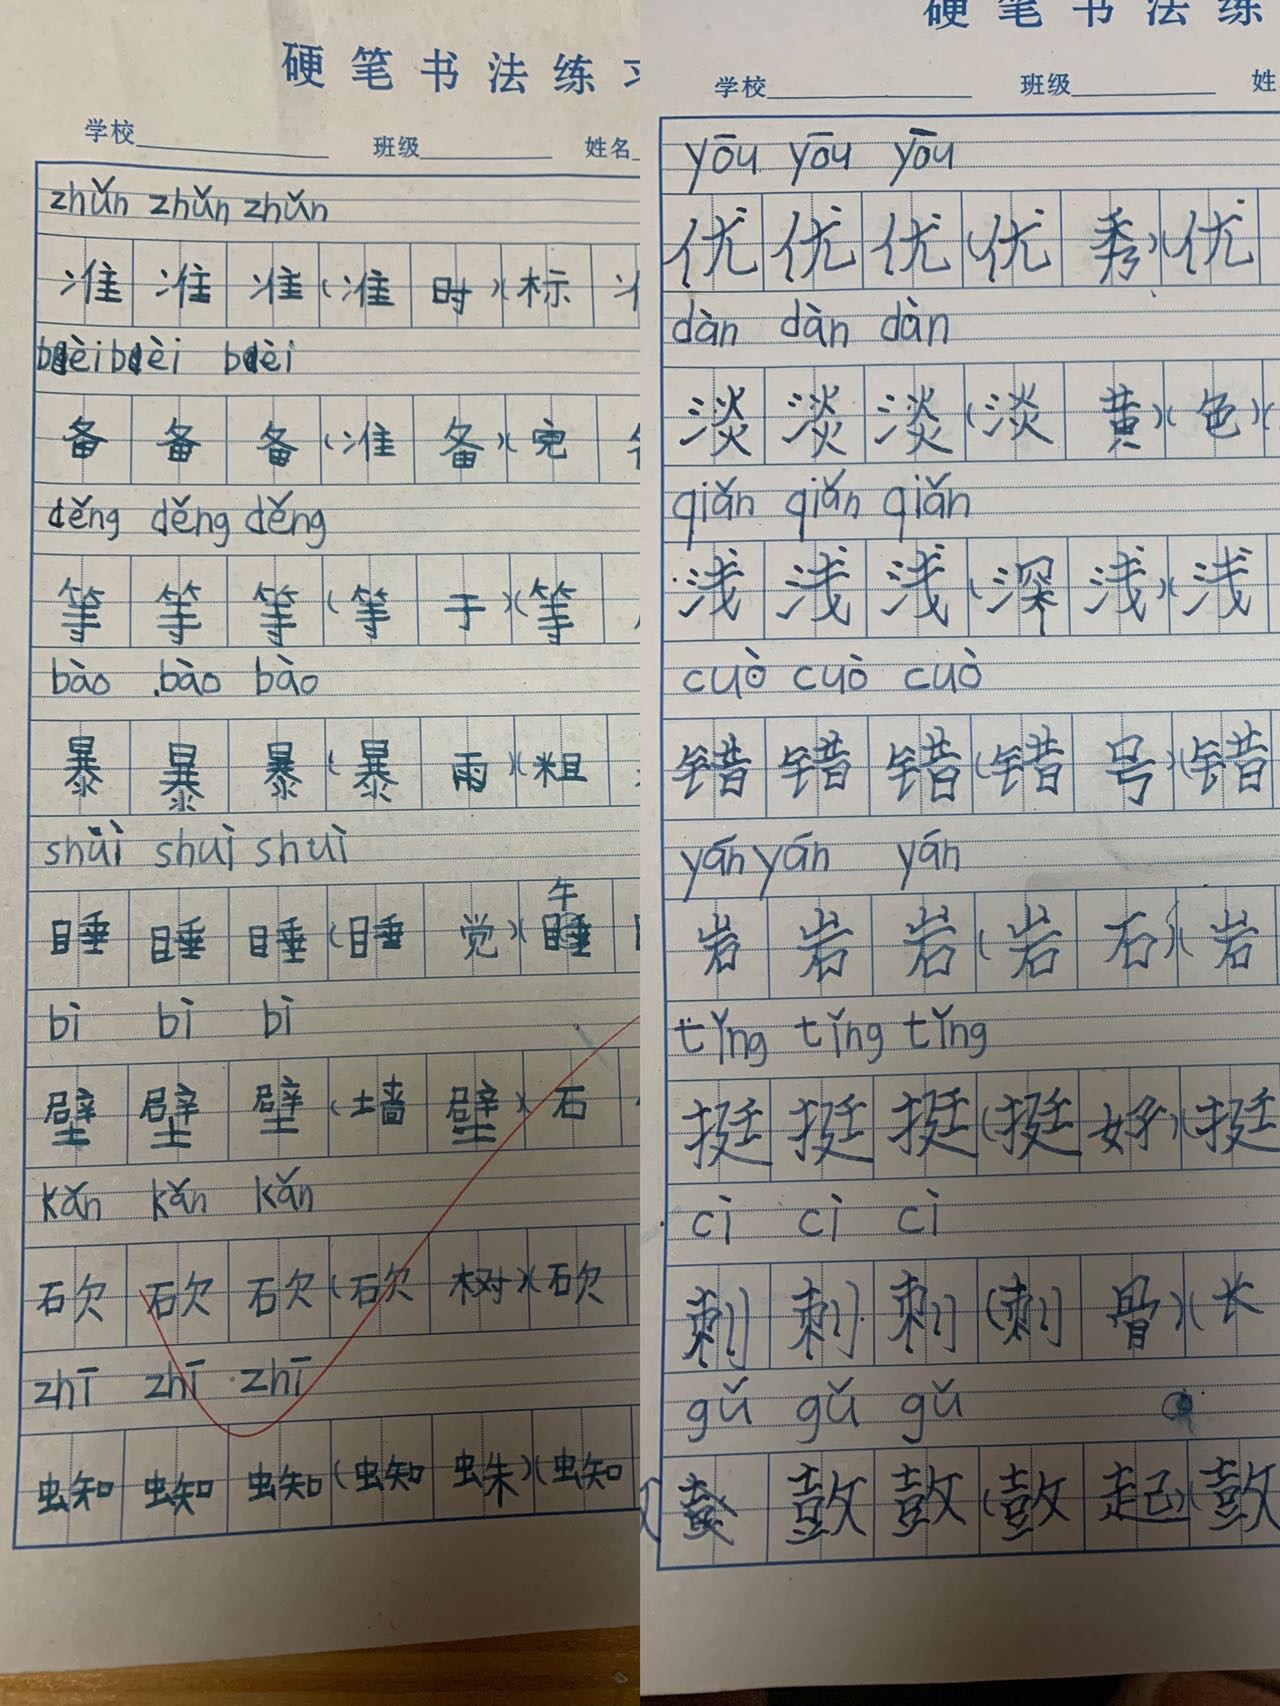 硬笔书法练
学校 班级 姓名
zhǔn zhǔn zhǔn
准 准 准 (准 时)(标
bèi bèi bèi
备 备 备 (准 备)(完
děng děng děng
等 等 等 (等 于)(等
bào bào bào
暴 暴 暴 (暴 雨)(粗
shuì shuì shuì
睡 睡 睡 (睡 觉)(午睡
bì bì bì
壁 壁 壁 (墙 壁)(石
kǎn kǎn kǎn
砍 砍 砍 (砍 树)(砍
zhī zhī zhī
蜘 蜘 蜘 (蜘 蛛)(蜘
硬笔书法练
学校 班级 姓
yōu yōu yōu
优 优 优 (优 秀)(优
dàn dàn dàn
淡 淡 淡 (淡 黄)(色)(
qiǎn qiǎn qiǎn
浅 浅 浅 (深 浅)(浅
cuò cuò cuò
错 错 错 (错 号)(错
yán yán yán
岩 岩 岩 (岩 石)(岩
tǐng tǐng tǐng
挺 挺 挺 (挺 好)(挺
cì cì cì
刺 刺 刺 (刺 骨)(长
gǔ gǔ gǔ
鼓 鼓 鼓 (鼓 起)(鼓